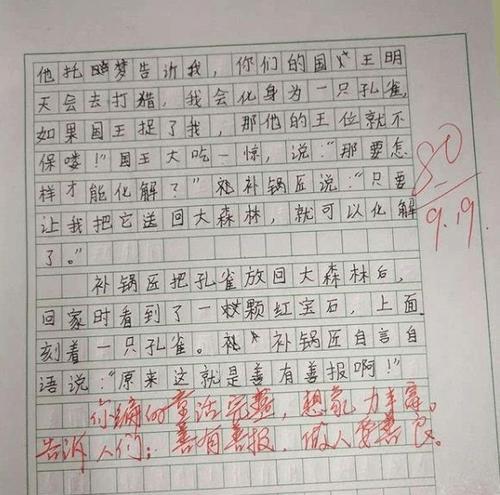 他托梦告诉我，你们的国王明
天会去打猎，我会化身为一只孔雀，
如果国王捉了我，那他的王位就不
保喽！”国王大吃一惊，说：“那要怎
样才能化解了？”补锅匠说：“只要
让我把它送回大森林，就可以化解
了。”
补锅匠把孔雀放回大森林后，
回家时看到了一颗红宝石，上面
刻着一只孔雀。补锅匠自言自
语说：“原来这就是善有善报啊！”
你编的童话完整，想象力丰富。
告诉人们：善有善报，做人要善良。
80
9.19